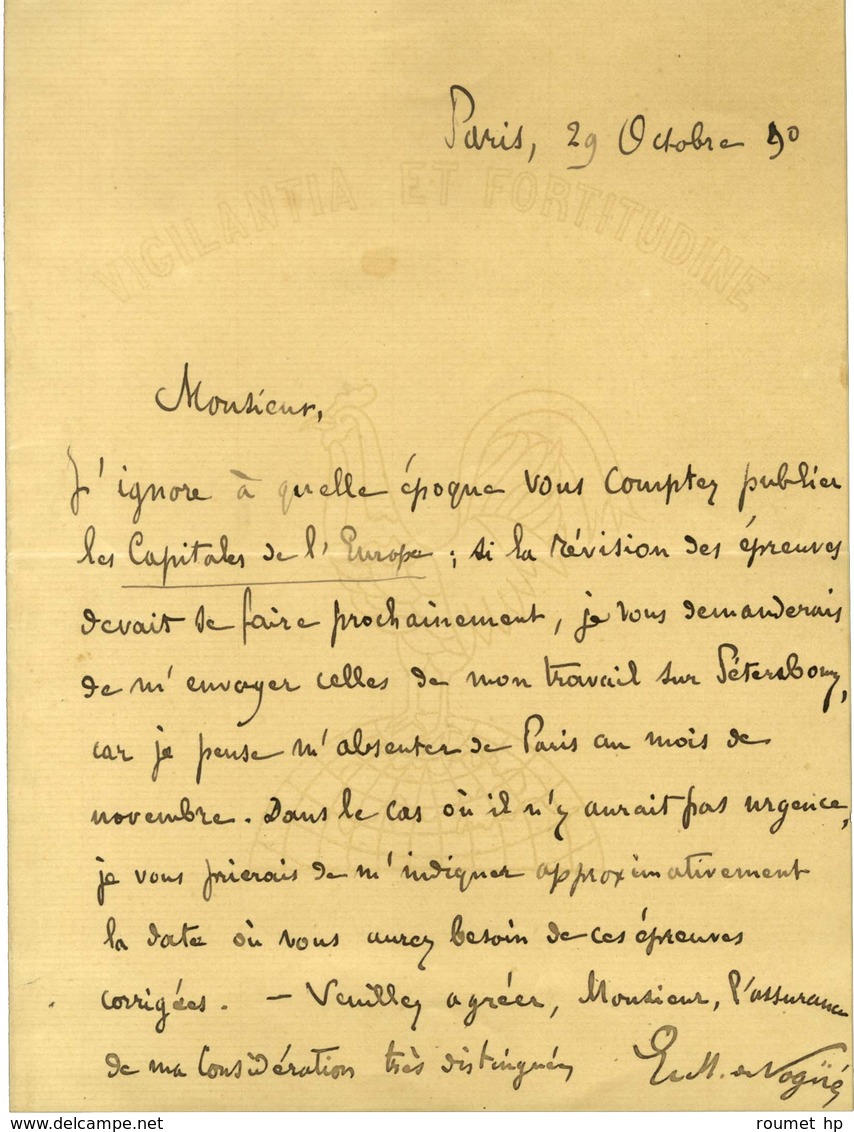 Paris, 29 Octobre 90
VIGILANTIA ET FORTITUDINE
Monsieur,
J'ignore à quelle époque vous comptez publier
les Capitales de l'Europe ; si la révision des épreuves
devait se faire prochainement, je vous demanderais
de m'envoyer celles de mon travail sur Pétersbourg,
car je pense m'absenter de Paris au mois de
novembre. Dans le cas où il n'y aurait pas urgence,
je vous prierais de m'indiquer approximativement
la date où vous aurez besoin de ces épreuves
corrigées. — Veuillez agréer, Monsieur, l'assurance
de ma considération très distinguée
E. M. de Vogüé
www.delcampe.net
roumet hp